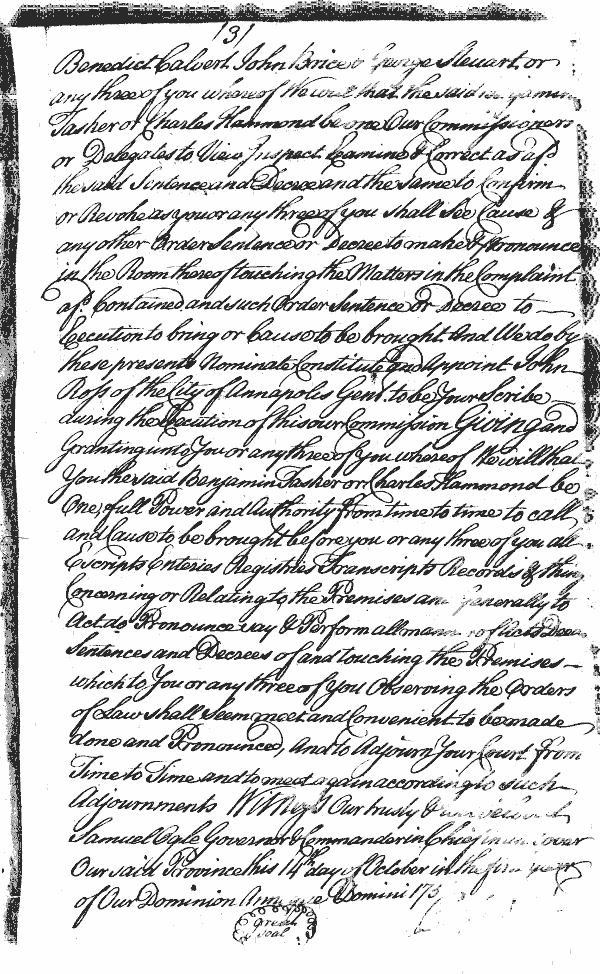 (3)
Benedict Calvert John Brice or George Steuart or
any three of you whereof We will that the said
Tasker or Charles Hammond be one Our Commissioners
or Delegates to View Inspect Examine & Correct as afd
the said Sentence and Decree and the same to Confirm
or Revoke as you or any three of you shall See Cause &
any other Order Sentence or Decree to make & Pronounce
in the Room thereof touching the Matters in the Complaint
afd. Contained and such Order Sentence or Decree to
Execution to bring or Cause to be brought And We do by
these presents Nominate Constitute and Appoint John
Ross of the City of Annapolis Gent. to be Your Scribe
during the Execution of this our Commission Giving and
Granting unto You or any three of You whereof We will that
You the said Benjamin Tasker or Charles Hammond be
One, full Power and Authority from time to time to call
and Cause to be brought before you or any three of you all
Escripts Enteries Registries Transcripts Records & things
Concerning or Relating to the Premises and generally to
Act do Pronounce say & Perform all manner of Acts
Sentences and Decrees of and touching the Premises
which to You or any three of You Observing the Orders
of Law shall Seem meet and Convenient to be made
done and Pronounced, And to Adjourn Your Court from
Time to Time and to meet again according to such
Adjournments Witness Our trusty &
Samuel Ogle Governor & Commander in Chief in over
Our said Province this 14th day of October in the year
of Our Dominion Domini 173
Great
Seal